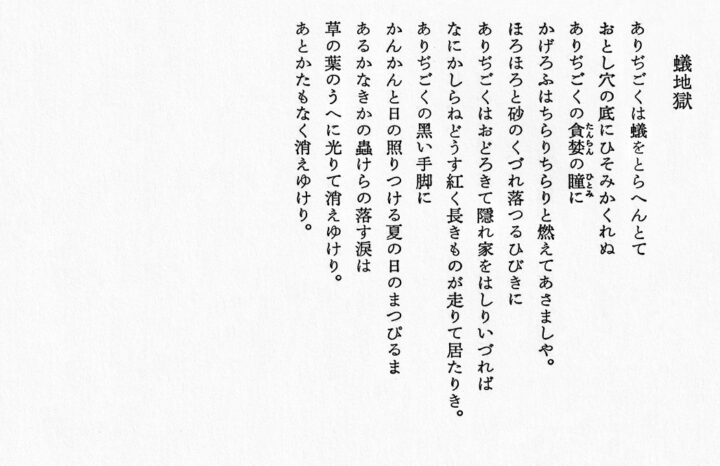 蟻地獄
ありぢごくは蟻をとらへんとて
おとし穴の底にひそみかくれぬ
ありぢごくの貪婪の瞳に
たんらん ひとみ
かげろふはちらりちらりと燃えてあさましや。
ほろほろと砂のくづれ落つるひびきに
ありぢごくはおどろきて隱れ家をはしりいづれば
なにかしらねどうす紅く長きものが走りて居たりき。
ありぢごくの黑い手脚に
かんかんと日の照りつける夏の日のまつぴるま
あるかなきかの蟲けらの落す淚は
草の葉のうへに光りて消えゆけり。
あとかたもなく消えゆけり。